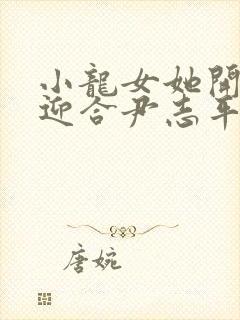 小龍女她開
迎合尹志平
唐婉